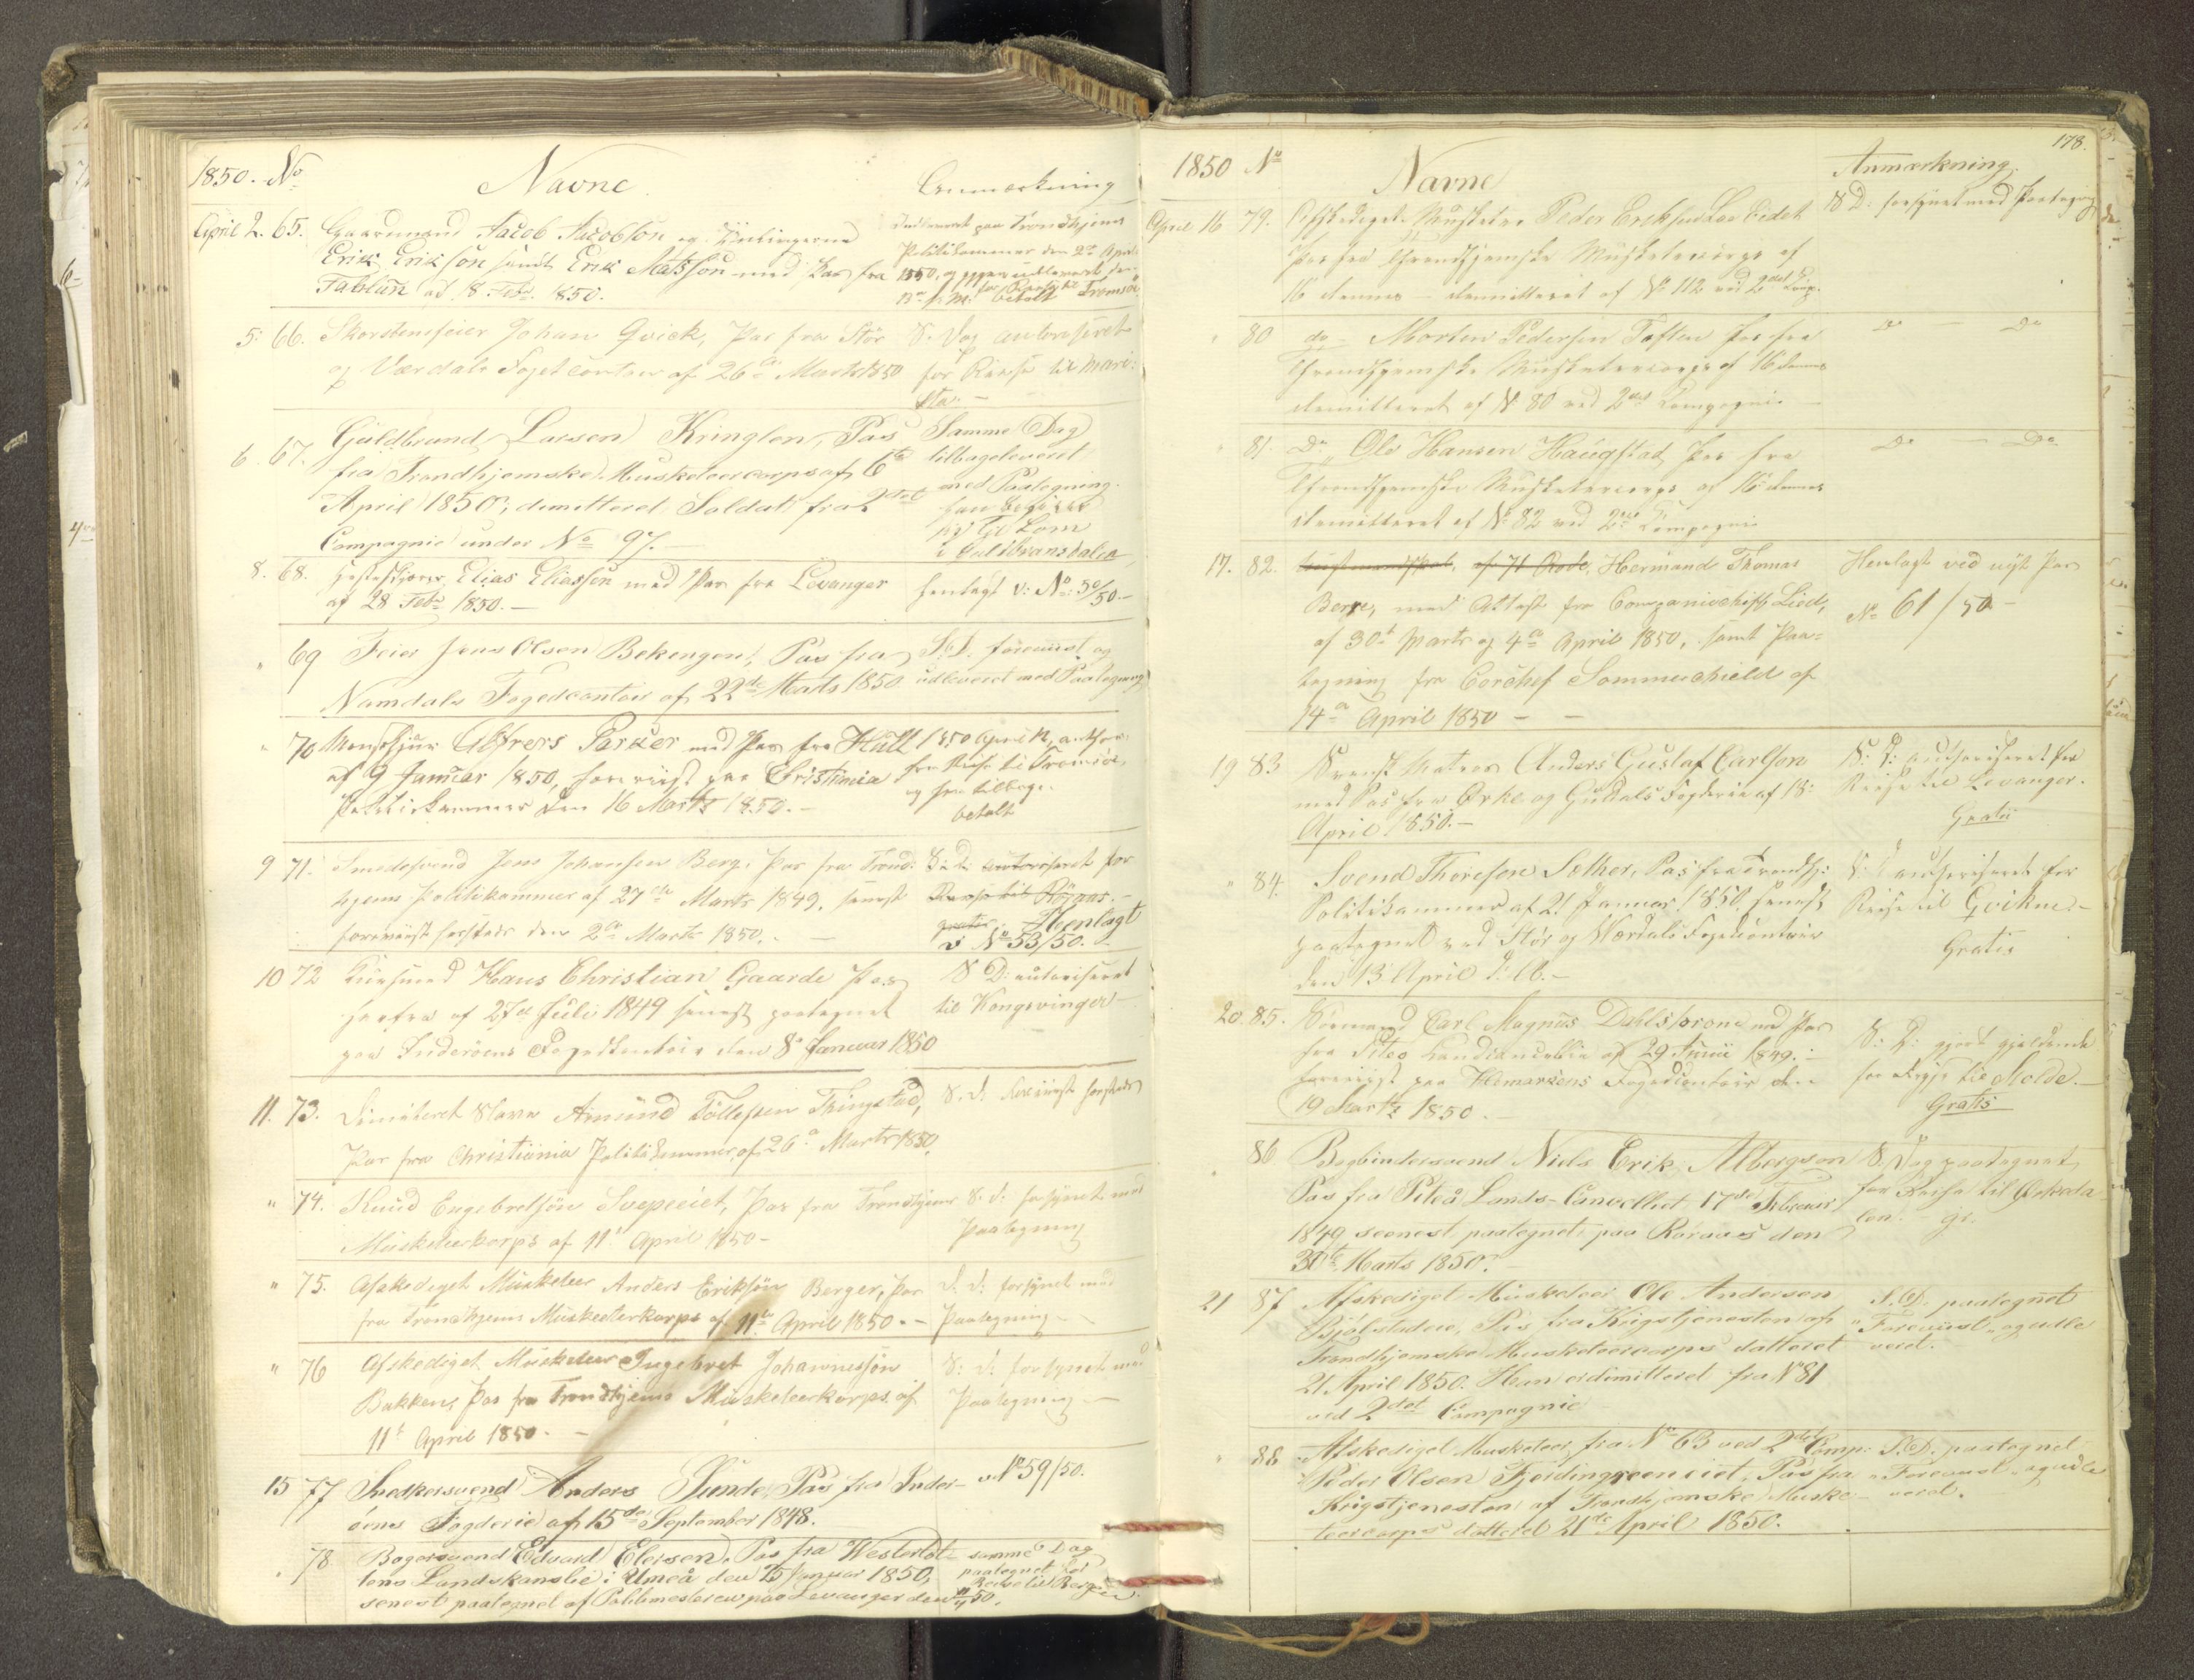 1850. No Navne. Anmærkning
April 2. 65. Gaardmand Jacob Jacobson og
Erik Erikson samt Erik Matsson med Pas fra
Fahlun af 18 Febr. 1850.
Indleveret paa Trondhjems
Politikammer den 2de April
1850, og igjen udleveret den
betalt Tromsö
5. 66. Skorstensfeier Johan Qvick, Pas fra Stör
og Værdals Fogetcontoir af 26de Marts 1850
S. Dag autoriseret
for Reise til
6. 67. Guldbrand Larsen Kringlen, Pas
fra Trondhjemske Musketeercorps af 6te
April 1850, demitteret Soldat fra 2det
Compagnie under No 97.
Samme Dag
tilbageleveret
med Paategning.
til Lom
i Guldbransdalen
8. 68. Elias Eliassen med Pas fra Levanger
af 28 Febr 1850.
henlagt v: No: 50/50.
" 69 Feier Jens Olsen Bekengen, Pas fra
Namdals Fogedcontoir af 22de Marts 1850
S.D. foreviist og
udleveret med Paategning
" 70 Parker med Pas fra Hull
af 9 Januar 1850, foreviist paa Christiania
Politikammer den 16 Marts 1850.
1850 April 12, author.
for Reise til Tromsöe,
og tilbage.
betalt
9 71. Smedesvend Jens Johansen Berg. Pas fra Trond-
hjems Politikammer af 27de Marts 1849, senest
foreviist sammesteds den 2de Marts 1850.
S: D: autoriseret for
Reise til Röraas.
gratis. Henlagt
v No 53/50.
10 72 Hans Christian Gaarde Pas
herfra af 27de Juli 1849 senest paategnet
paa Inderöens Fogedkontoir den 8de Januar 1850
S D: autoriseret
til Kongsvinger
11. 73. Dimitteret Slave Amund Tollefsen Tringstad,
Pas fra Christiania Politikammer, af 26de Marts 1850.
S. D: foreviist
" 74. Knud Engebretsön Svepeeiet, Pas fra Trondhjems
Musketeerkorps af 11te April 1850
S. D: forsynet med
Paategning
" 75. Afskediget Musketeer Anders Eriksön Berger, Pas
fra Trondhjems Musketeerkorps af 11te April 1850.
S. D: forsynet med
Paategning
" 76 Afskediget Musketeer Ingebret Johannessön
Bakken, Pas fra Trondhjems Musketeerkorps af
11te April 1850.
S: D: forsynet med
Paategning
15 77 Snedkersvend Anders Sunde, Pas fra Inder-
öens Fogderie af 15de September 1848.
v. No 59/50.
" 78. Bagersvend Edvard Elersen, Pas fra Westerbot-
tens Landskanslie i Umeå den 15 Januar 1850,
senest paategnet af Politimesteren paa Levanger den
samme Dag
paategnet for
Reise til Bergen.
178.
1850 No Navne Anmærkning.
April 16 79. Afskediget Musketeer Peder Eriksen Loe Eidet
Pas fra Throndhjemske Musketeercorps af
16 dennes demitteret af No 112 ved 2det Comp.
S D: forsynet med Paategning
" 80 do Morten Pedersen Toften Pas fra
Throndhjemske Musketeercorps af 16 dennes
demitteret af No 80 ved 2det Compagnie
Do Do
" 81. Do Ole Hansen Haugstad Pas fra
Throndhjemske Musketeercorps af 16 dennes
demitteret af No 82 ved 2det Compagnie
Do Do
17. 82. Hermand Thomas
Berre, med Attest fra Companiechef Lied,
af 30te Marts og 4de April 1850, samt Paa-
tegning fra Corchef Sommerschield af
14de April 1850
Henlagt ved nyt Pas
No 61/50
19 83 Svensk Matros Anders Gustaf Carlson
med Pas fra Orke og Guldals Fogderie af 18:
April 1850.
S: D: authoriseret for
Reise til Levanger.
Gratis
" 84. Svend Thoresen Sæther, Pas fra Trondhj:
Politikammer af 21 Januar 1850, senest
paategnet ved Stör og Værdals Fogedcontoir
den 13 April d: A.
S: D authoriseret for
Reise til Qvikne.
Gratis
20. 85. Carl Magnus Dahlstrom med Pas
fra Piteo Landscancellie af 29 Junii 1849.
foreviist paa Helmarkens Fogedcontoir den
19 Marts 1850.
S: D: gjort gjeldende
for Reise til Molde.
Gratis
" 86 Bogbindersvend Niels Erik Albergson
Pas fra Piteå Lands-Cancelliet 17de Februar
1849, seenest paategnet paa Röraas den
30te Marts 1850.
S. Dag paategnet
for Reise til Orkeda-
len. gr.
21 87 Afskediget Musketeer Ole Andersen
Bjölstadöie, Pas fra Krigstjenesten af
Trondhjemske Musketeercorps datteret
21 April 1850. Han er dimitteret fra No 81
ved 2det Compagnie
S.D. paategnet
"Foreviist" og udle-
veret.
" 88 Afskediget Musketeer fra No 63 ved 2det Comp:
Peder Olsen Fjerdingreeneiet, Pas fra
Krigstjenesten af Trondhjemske Muske-
teercorps datteret 21de April 1850.
S.D. paategnet
"Foreviist" og udle-
veret.